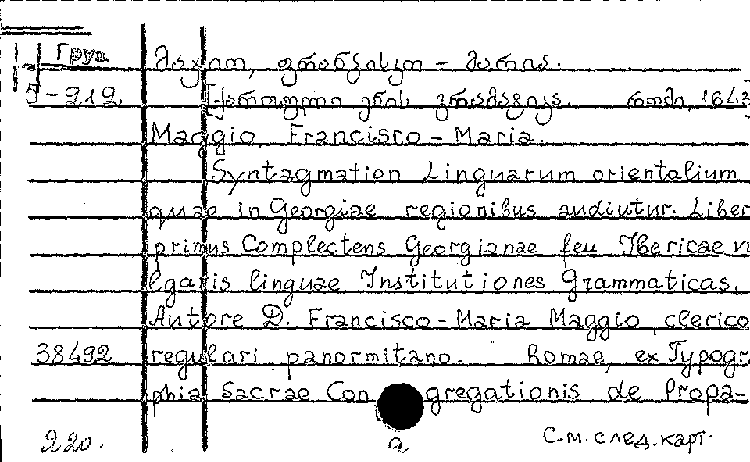 Груз. მაჯიო, ფრანჩისკო - მარია.
J-212. [ქართული ენის გრამატიკა. რომი, 1643
Maggio, Francisco-Maria.
Syntagmation Linguarum orientalium
quae in Georgiae regionibus audiutur. Liber
primus Complectens Georgianae feu Ibericae vu
lgaris linguae Institutiones Grammaticas.
Autore D. Francisco-Maria Maggio, clerico
38492 regulari panormitano. Romae, ex Typogr
phia Sacrae Congregationis de Propa-
220. a С.м. след. карт.